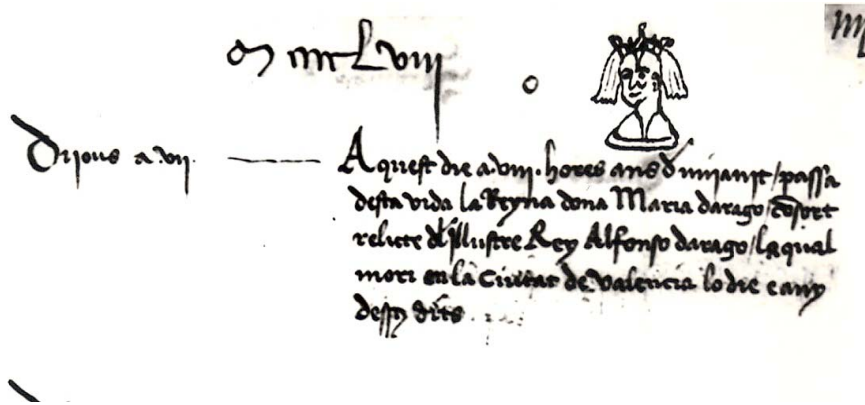 M CCCC L viij
Dijous a .vij.
Aquest die a .viij. hores ans d mijanit / passa
desta vida la Reyna dona Maria darago / consort
relicte del illustre Rey Alfonso darago / la qual
mori en la Ciutat de Valencia lo die e any
desus dits